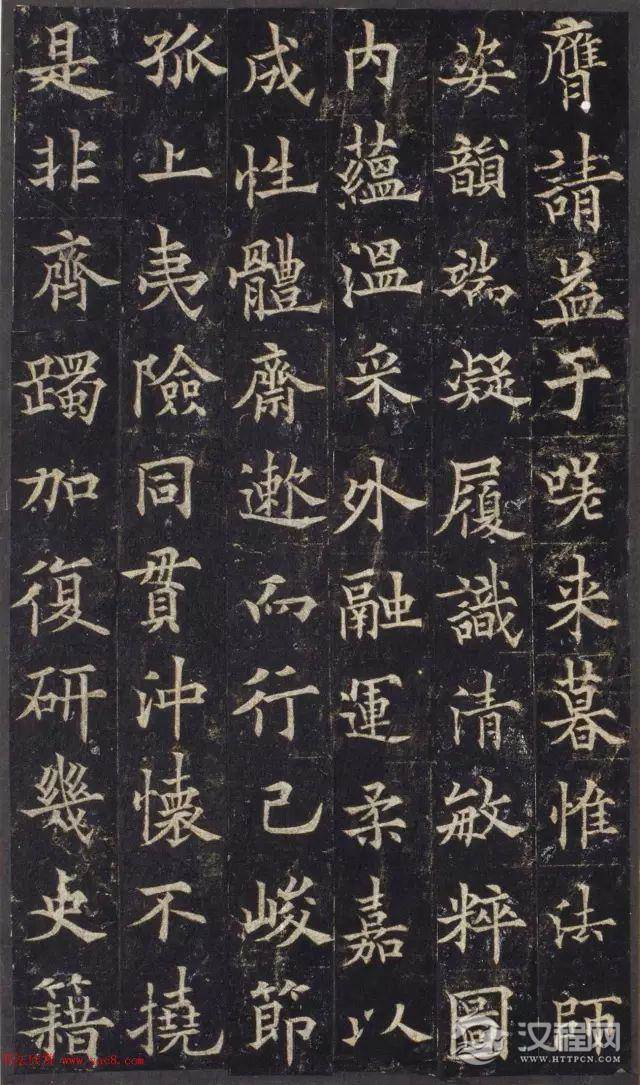 膺請益于嗟来暮惟法師
姿韻端凝履識清敏粹圖
内蘊溫采外融運柔嘉以
成性體齋遬而行己峻節
孤上夷險同貫沖懷不撓
是非齊躅加復研幾史籍
汉程网
WWW.HTTPCN.COM